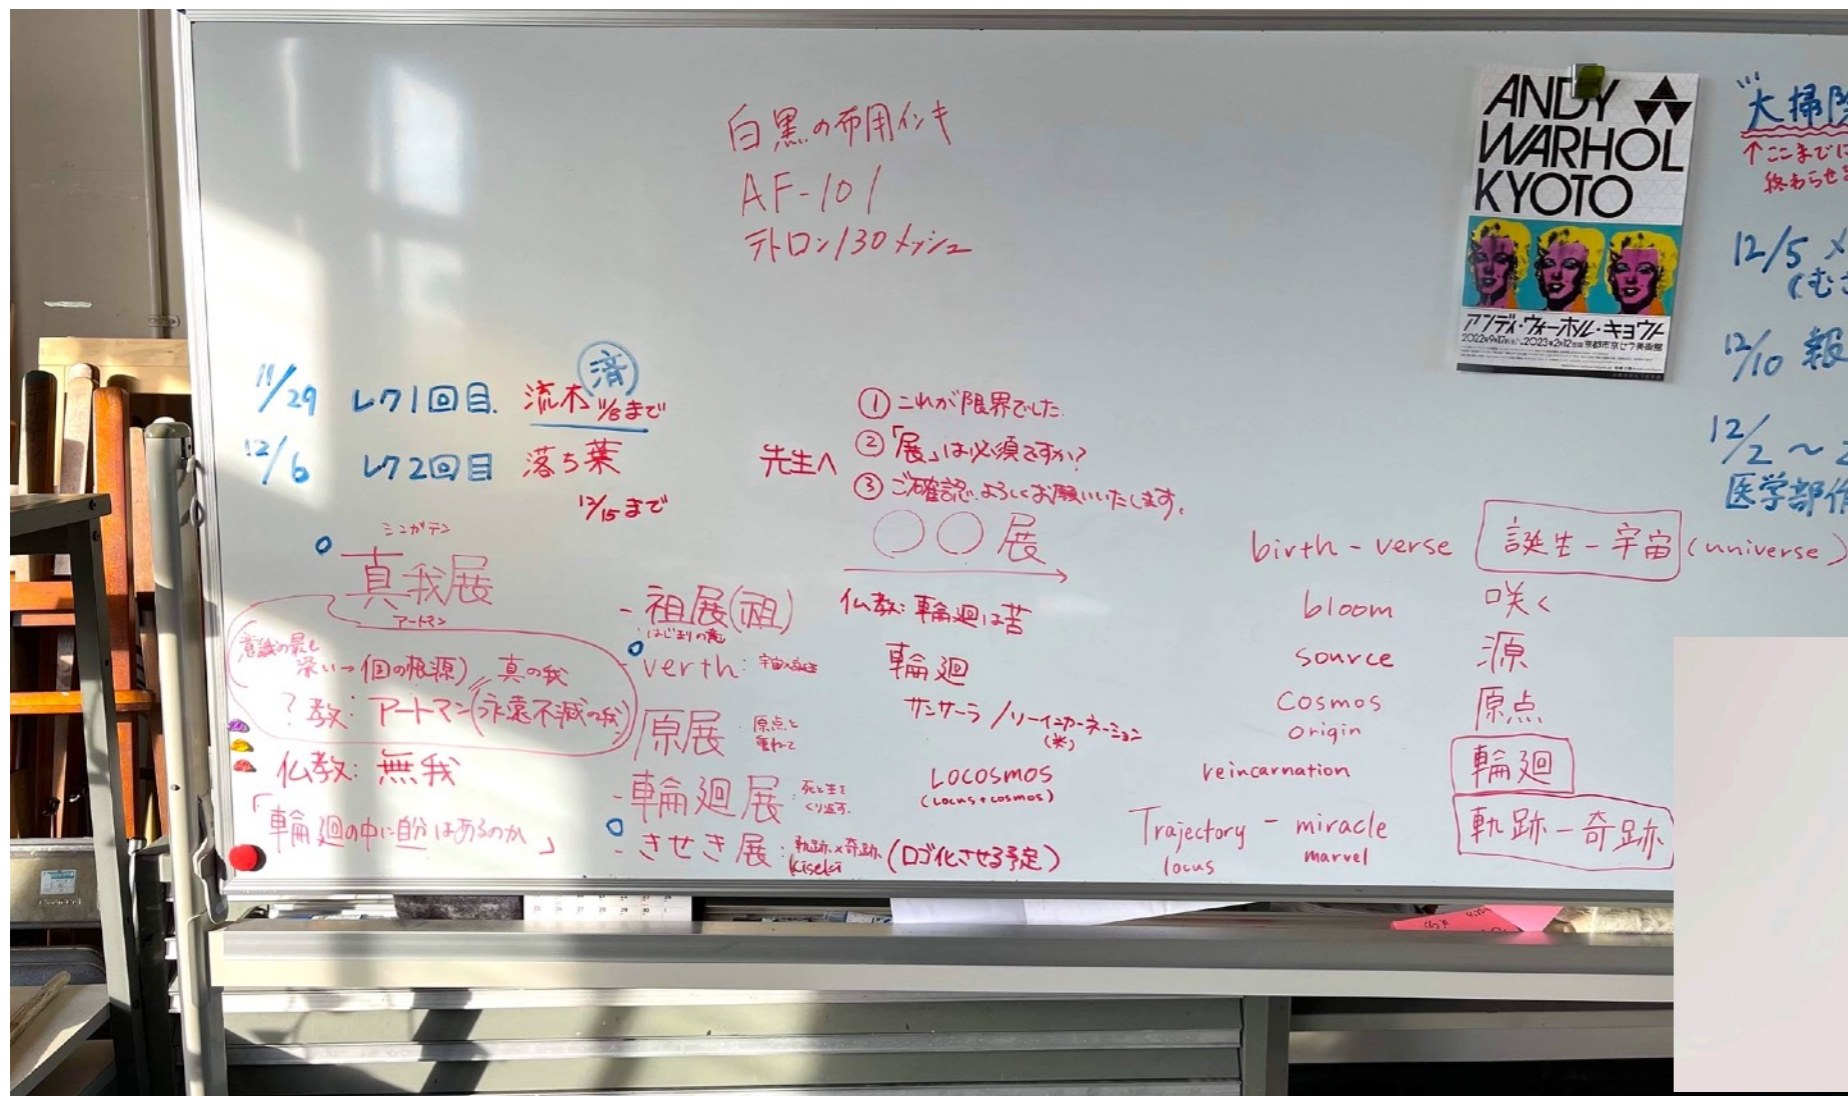 白黒の布用インキ
AF-101
テトロン130メッシュ
ANDY
WARHOL
KYOTO
アンディ・ウォーホル・キョウト
2022年9月17日(土)~2023年2月12日(日) 京都市京セラ美術館
大掃除
↑ここまでに
終わらせ
12/5
12/10 報
12/2 ~
医学部
11/29 レク1回目. 流木 済
まで
12/6 レク2回目 落ち葉
12/15まで
先生へ
① これが限界でした.
② 「展」は必須ですか?
③ ご確認、よろしくお願いいたします。
〇〇展
シンガテン
真我展
アートマン
意識の最も
深いつ個の根源) 真の我
? 教: アートマン(永遠不滅の我)
仏教: 無我
「輪廻の中に自分はあるのか」
- 祖展(祖)
はじまりの意
- verth: 宇宙×誕生
原展 : 原点と
重ねて
- 輪廻展 : 死と生を
くり返す.
- きせき展 : 軌跡×奇跡 (ロゴ化させる予定)
kiseki
仏教: 輪廻は苦
輪廻
サンサーラ /リーインカーネーション
(米)
LOCOSMOS
(Locus + cosmos)
birth - verse 誕生 - 宇宙 (universe)
bloom 咲く
source 源
cosmos 原点
origin
reincarnation 輪廻
Trajectory - miracle 軌跡 - 奇跡
locus marvel